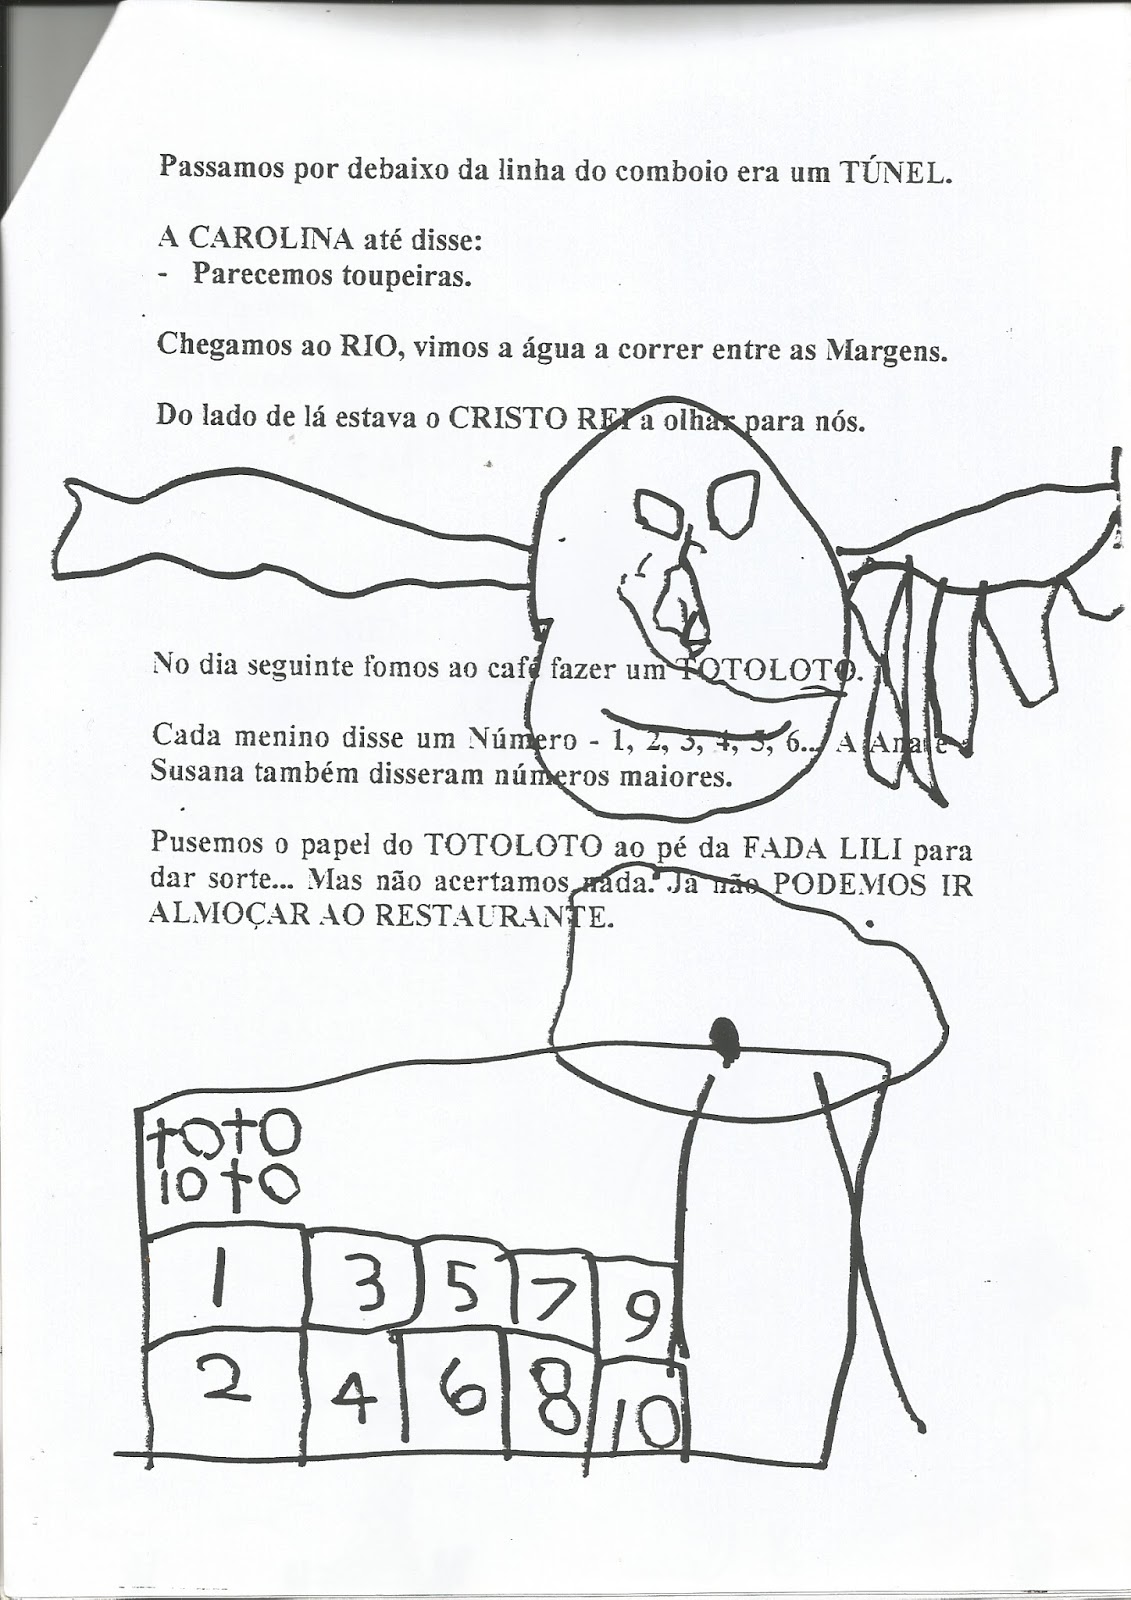 Passamos por debaixo da linha do comboio era um TÚNEL.
A CAROLINA até disse:
- Parecemos toupeiras.
Chegamos ao RIO, vimos a água a correr entre as Margens.
Do lado de lá estava o CRISTO REI a olhar para nós.
No dia seguinte fomos ao café fazer um TOTOLOTO.
Cada menino disse um Número - 1, 2, 3, 4, 5, 6... A Ana e
Susana também disseram números maiores.
Pusemos o papel do TOTOLOTO ao pé da FADA LILI para
dar sorte... Mas não acertamos nada. Já não PODEMOS IR
ALMOÇAR AO RESTAURANTE.
tOtO
lOtO
1 3 5 7 9
2 4 6 8 10